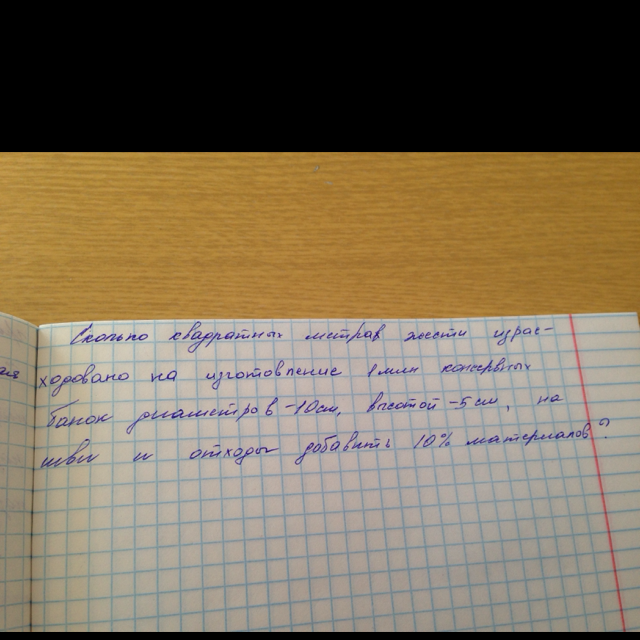 Сколько квадратных метров жести израс-
ходовано на изготовление 1 млн консервных
банок диаметров -10 см, высотой -5 см, на
швы и отходы добавить 10% материалов?